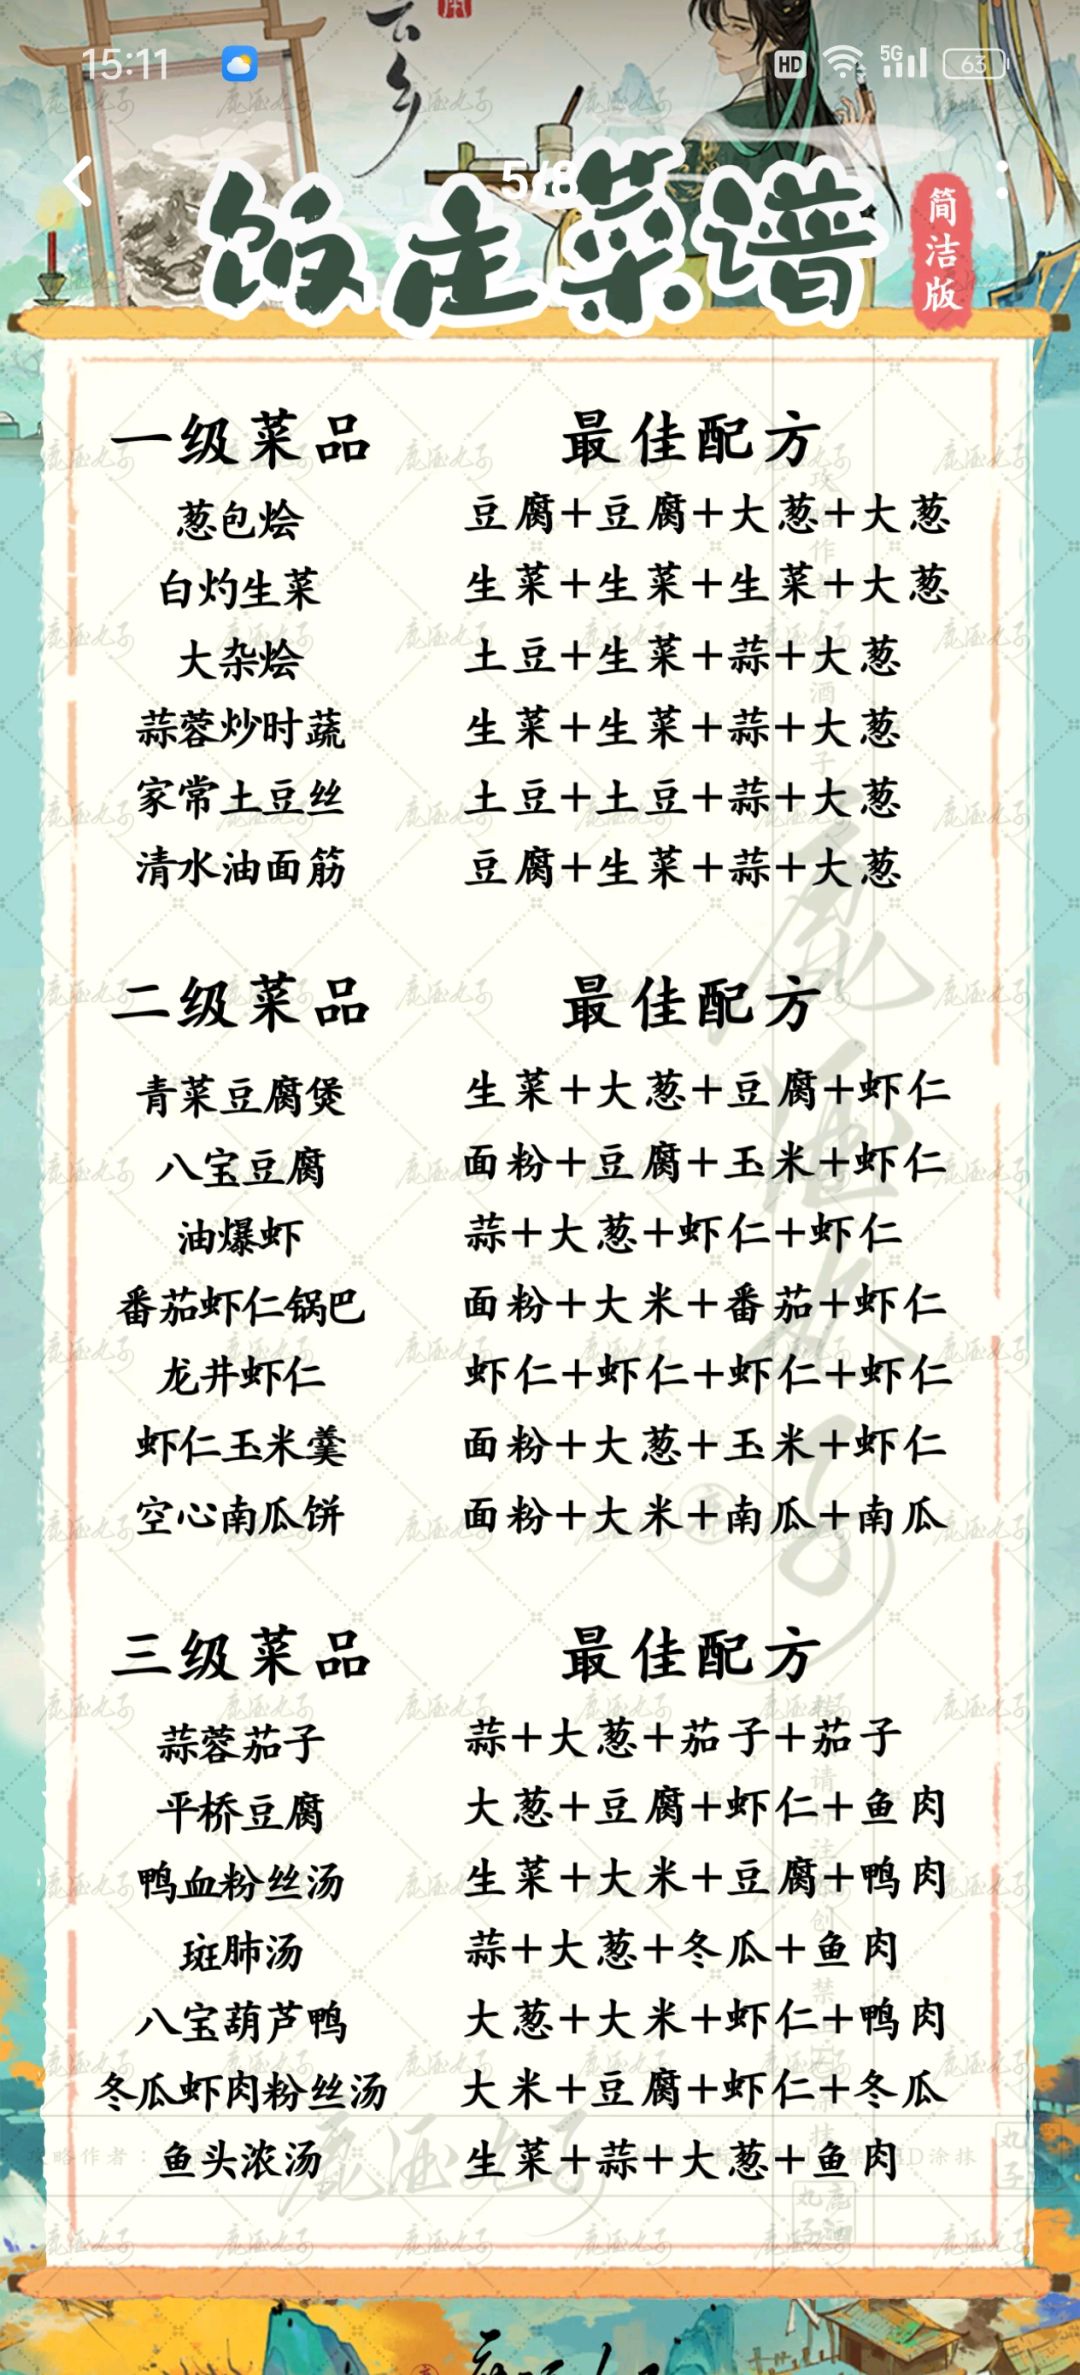 15:11
HD 5G 63
5/8
饭走菜谱
简洁版
一级菜品 最佳配方
葱包烩 豆腐+豆腐+大葱+大葱
白灼生菜 生菜+生菜+生菜+大葱
大杂烩 土豆+生菜+蒜+大葱
蒜蓉炒时蔬 生菜+生菜+蒜+大葱
家常土豆丝 土豆+土豆+蒜+大葱
清水油面筋 豆腐+生菜+蒜+大葱
二级菜品 最佳配方
青菜豆腐煲 生菜+大葱+豆腐+虾仁
八宝豆腐 面粉+豆腐+玉米+虾仁
油爆虾 蒜+大葱+虾仁+虾仁
番茄虾仁锅巴 面粉+大米+番茄+虾仁
龙井虾仁 虾仁+虾仁+虾仁+虾仁
虾仁玉米羹 面粉+大葱+玉米+虾仁
空心南瓜饼 面粉+大米+南瓜+南瓜
三级菜品 最佳配方
蒜蓉茄子 蒜+大葱+茄子+茄子
平桥豆腐 大葱+豆腐+虾仁+鱼肉
鸭血粉丝汤 生菜+大米+豆腐+鸭肉
斑肺汤 蒜+大葱+冬瓜+鱼肉
八宝葫芦鸭 大葱+大米+虾仁+鸭肉
冬瓜虾肉粉丝汤 大米+豆腐+虾仁+冬瓜
鱼头浓汤 生菜+蒜+大葱+鱼肉
攻略作者：
鹿酒丸子